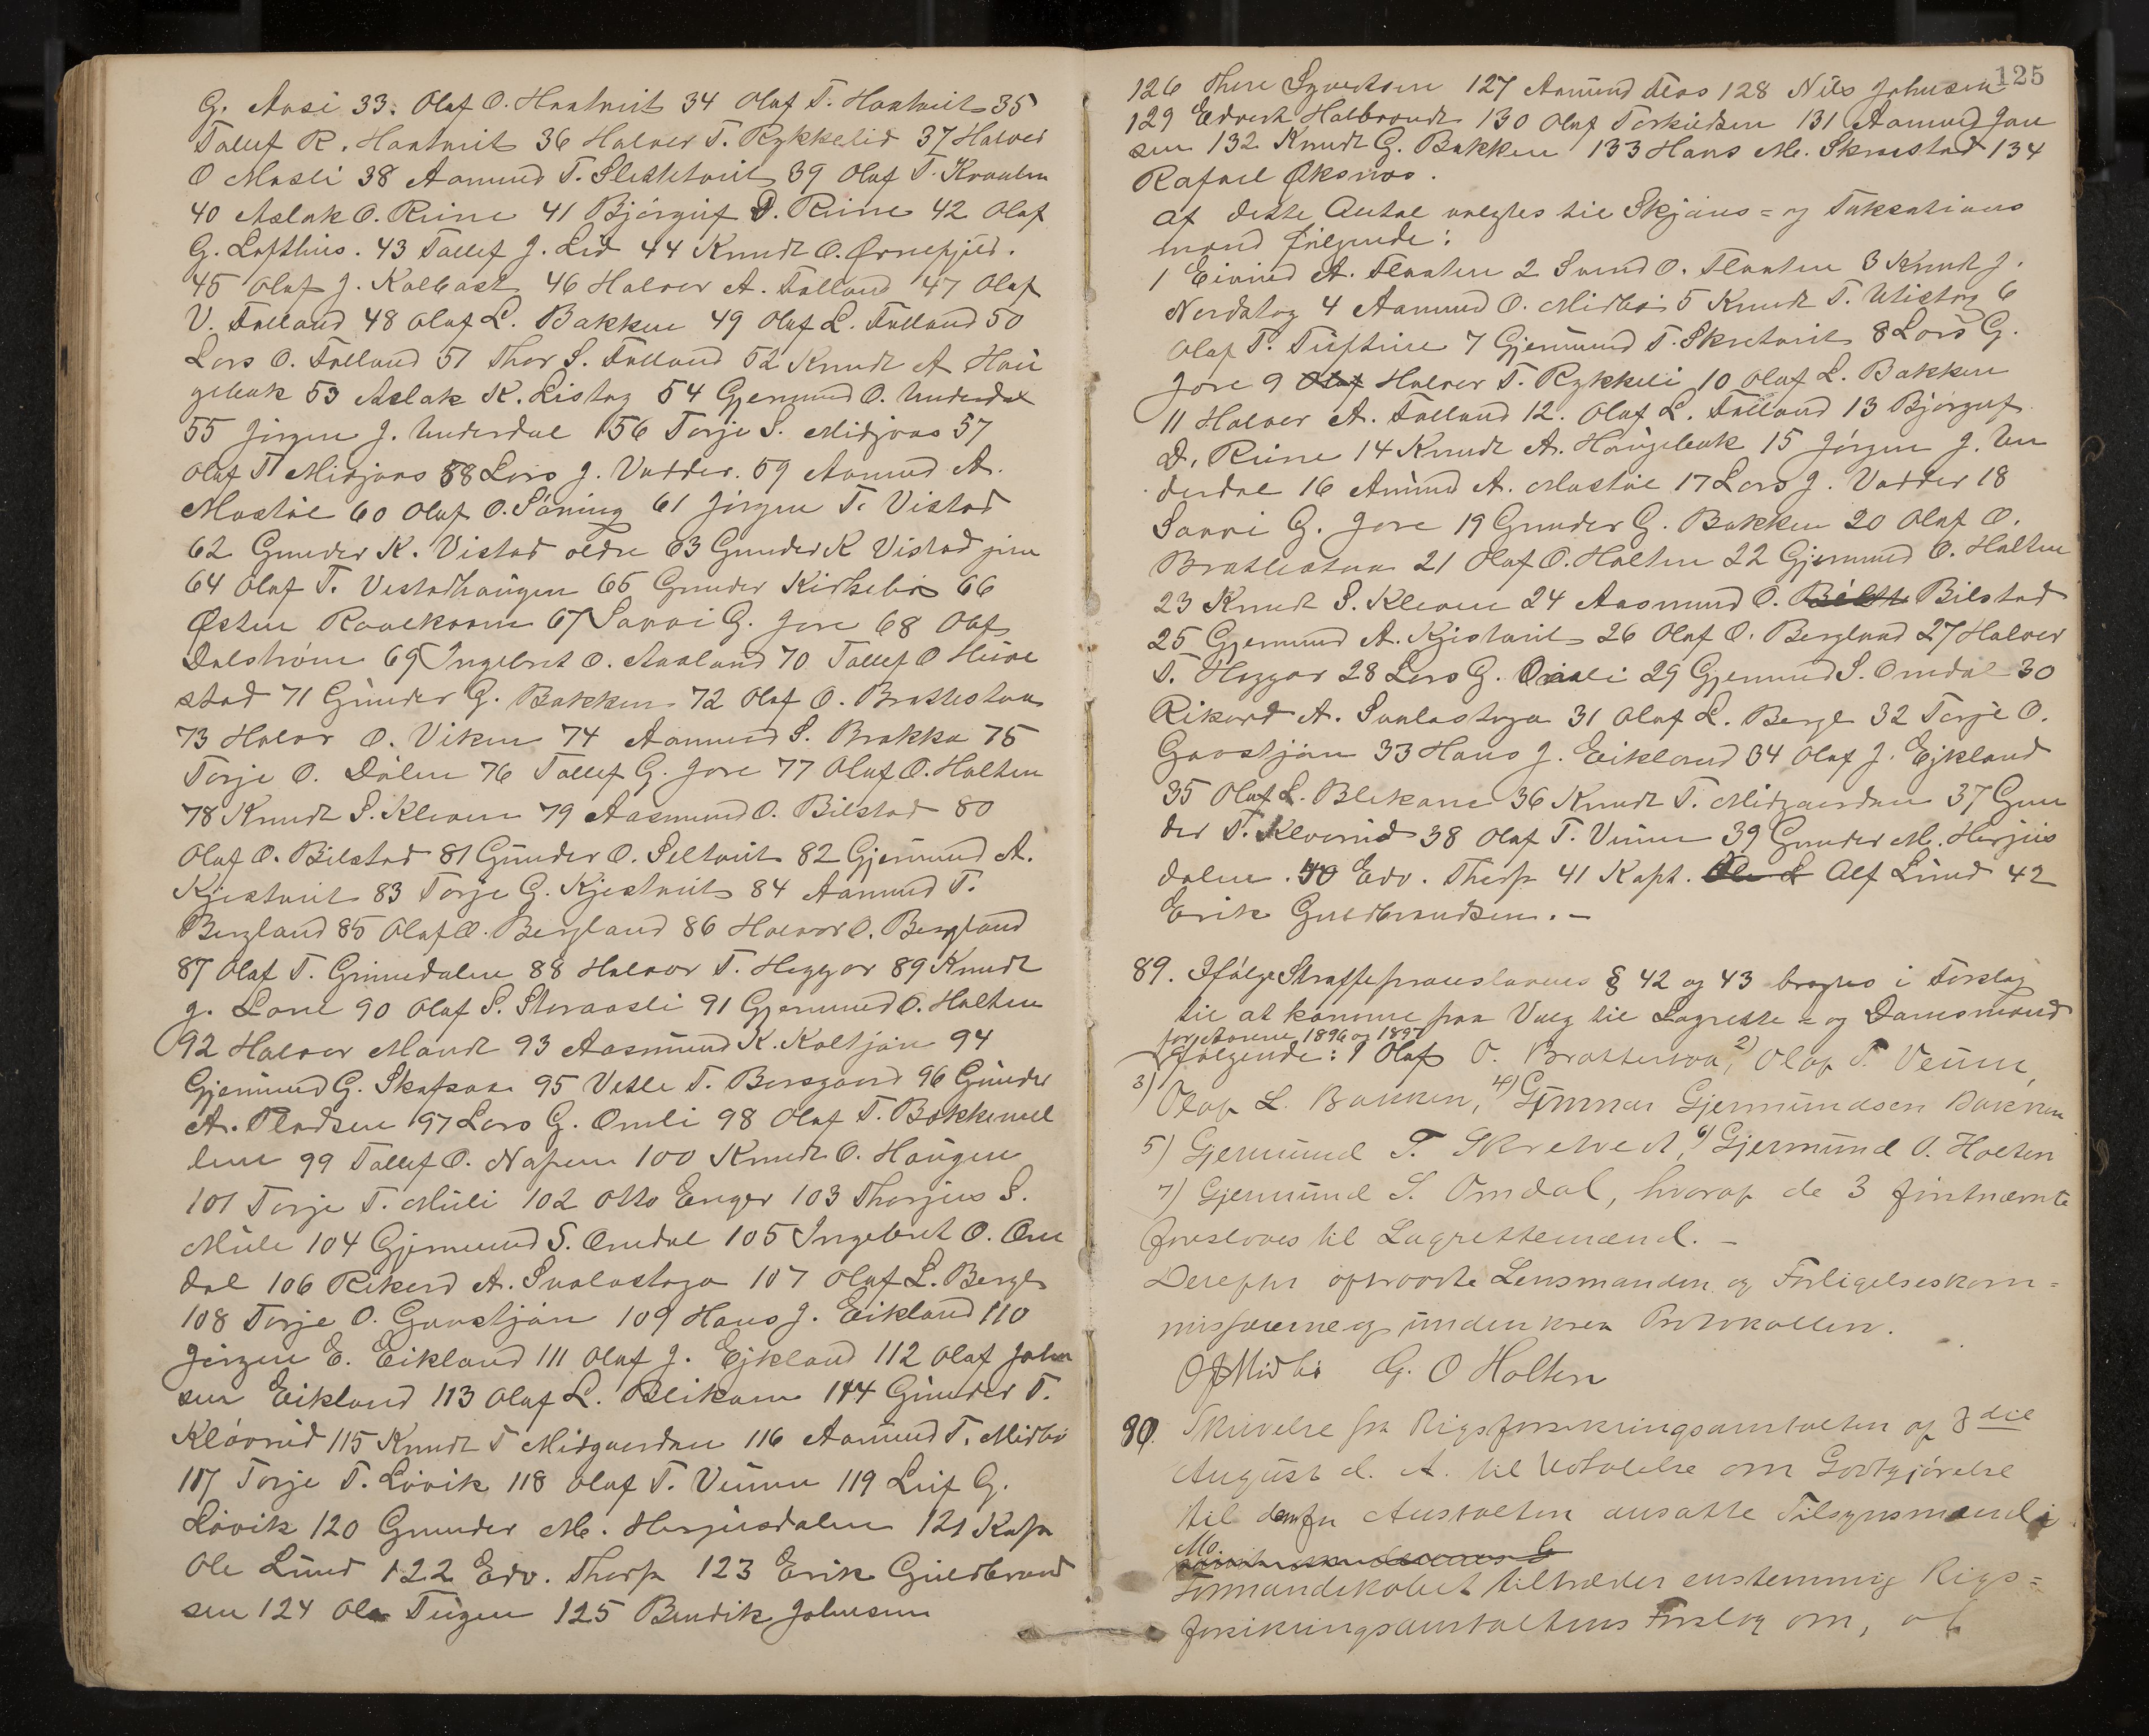 G. Aasi 33. Olaf O. Haatveit 34 Olaf T. Haatveit 35
Tallef R. Haatveit 36 Halvor T. Rykkelid 37 Halvor
O Masli 38 Aamund T. Slettetveit 39 Olaf T. Kraalen
40 Aslak O. Rinne 41 Bjørguf D. Rinne 42 Olaf
G. Lofthus. 43 Tallef J. Lid 44 Knudt O. Ørnefjeld.
45 Olaf J. Kalbast 46 Halvor A. Følland 47 Olaf
V. Følland 48 Olaf L. Bakken 49 Olaf L. Følland 50
Lars O. Følland 51 Thor S. Følland 52 Knudt A Hau
gebak 53 Aslak K. Listog 54 Gjermund O. Underdal
55 Jørgen J. Underdal 56 Torje S. Midjaas 57
Olaf T Midjaas 58 Lars J. Vadder. 59 Aamund A.
Mostøl 60 Olaf O. Søning 61 Jørgen T. Vistad
62 Gunder K. Vistad ældre 63 Gunder K Vistad yngre
64 Olaf T. Vestadhaugen 65 Gunder Kirkebø 66
Østen Raaekaam 67 Saavi G. Jore 68 Olaf
Dalstrøm 69 Ingebret O. Aaland 70 Tallef O Huve
stad 71 Gunder G. Bakken 72 Olaf O. Brattestaa
73 Halvor O. Viken 74 Aamund S. Brokka 75
Torje O. Dølen 76 Tallef G. Jore 77 Olaf O. Holten
78 Knudt S. Kleven 79 Aasmund O. Bilstad 80
Olaf O. Bilstad 81 Gunder O. Seltveit 82 Gjermund A.
Kjistveit 83 Torje G. Kjistveit 84 Aamund T.
Bergland 85 Olaf O. Bergland 86 Halvor O. Bergland
87 Olaf T. Grimedalen 88 Halvor T. Heggar 89 Knudt
J. Laul 90 Olaf S. Storaasli 91 Gjermund O. Holten
92 Halvor Mandt 93 Aasmund K. Kaltjøn 94
Gjermund G. Skafsaa 95 Vetle T. Borgaard 96 Gunder
A. Pladsen 97 Lars G. Omli 98 Olaf T. Bakkemel
len 99 Tallef O. Napen 100 Knudt O. Haugen
101 Torje T. Muli 102 Otto Enger 103 Thorjus S.
Mule 104 Gjermund S. Omdal 105 Ingebret O. Om
dal 106 Rikard A. Svalastoga 107 Olaf L. Berge
108 Torje O. Gaastjøn 109 Hans J. Eikland 110
Jørgen E. Eikland 111 Olaf J. Ejkland 112 Olaf John
sen Eikland 113 Olaf L. Blikom 114 Gunder T.
Kløvrud 115 Knudt T Midgaarden 116 Aamund T. Midbø
117 Torje T. Løvik 118 Olaf T. Vinne 119 Leif G.
Løvik 120 Gunder M. Herjusdalen 121 Kapt
Ole Lund 122 Edv. Thorp 123 Erik Guldbrand
sen 124 Ola Tugen 125 Bendik Johnsen
125
126 Thore Syvertsen 127 Aamund Aas 128 Nils Johnsen
129 Edvart Halbrandt 130 Olaf Torkildsen 131 Aamund Jan
sen 132 Knudt G. Bakken 133 Hans M. Skraastad 134
Rafael Øksnæs.
Af dette Antal valgtes til Skjøns- og Taksations
mænd følgende:
1 Eivind A. Flaaten 2 Svend O. Flaaten 3 Knudt J.
Nordstog 4 Aamund O. Midbø 5 Knudt T. Utistog 6
Olaf T. Tuftene 7 Gjermund T. Skretveit 8 Lars G.
Jore 9 Olaf Halvor T. Rykkeli 10 Olaf L. Bakken
11 Halvor A. Følland 12. Olaf L. Følland 13 Bjørguf
D. Rinne 14 Knudt A. Haugebak 15 Jørgen J. Un
derdal 16 Amund A. Mostøl 17 Lars J. Vadder 18
Saavi G. Jore 19 Gunder G. Bakken 20 Olaf O.
Brattestaa 21 Olaf O. Holten 22 Gjermund O. Holten
23 Knudt S. Kleven 24 Aasmund O. Bilstad
25 Gjermund A. Kjistveit 26 Olaf O. Bergland 27 Halvor
T. Heggar 28 Lars G. Omli 29 Gjermund S. Omdal 30
Rikard A. Svalastoga 31 Olaf L. Berge 32 Torje O.
Gaastjøn 33 Hans J. Eikland 34 Olaf J. Ejkland
35 Olaf L. Blikom 36 Knudt T. Midgaarden 37 Gun
der T. Kløvrud 38 Olaf T. Vinne 39 Gunder M. Herjus
dalen. 40 Edv. Thorp 41 Kapt. Ole L Alf Lund 42
Erik Guldbrandsen. -
89. Ifølge Straffeproceslovens § 42 og 43 bragtes i Forslag
til at komme paa Valg til Lagrette- og Domsmænd
for Aarene 1896 og 1897
følgende: 1 Olaf O. Brattestaa, 2) Olaf T. Veum,
3) Olaf L. Bakken, 4) Gunnar Gjermundsen Bakken
5) Gjermund T. Skretveit, 6) Gjermund O. Holten
7) Gjermund S. Omdal, hvoraf de 3 førstnævnte
foresloges til Lagrettemænd. -
Derefter oplæste Lensmanden og Forligelseskom-
missærerne og underskrev Protokollen.
O J Midbø G. O Holten
90. Skrivelse fra Rigsforsikringsanstalten af 3die
August d. A. til Udtalelse om Godtgjørelse
til dem for Anstalten ansatte Tilsynsmænd i
Mo.
Formandskabet tiltræder enstemmig Rigs-
forsikringsanstaltens Forslag om, at